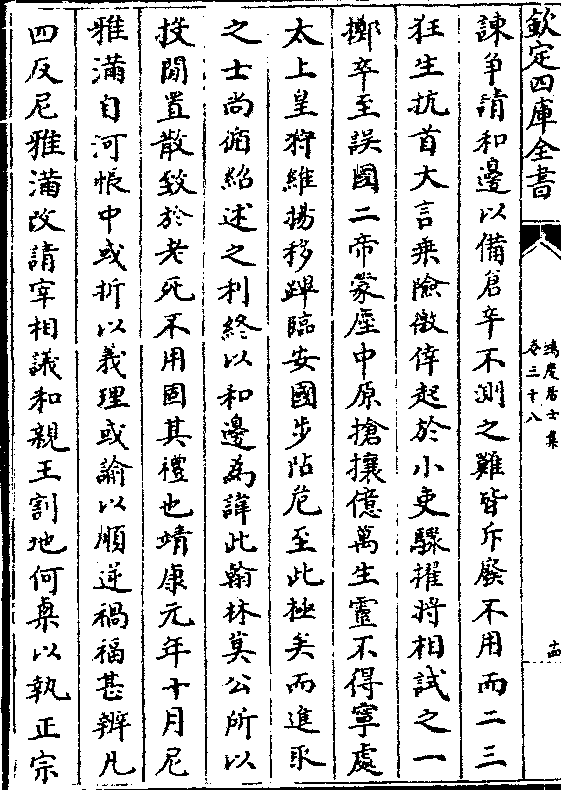 欽定四庫全書
鴻慶居士集
卷三十八
十四
諫爭請和邊以備倉卒不測之難皆斥廢不用而二三
狂生抗首大言乗險徼倖起於小吏驟擢將相試之一
擲卒至誤國二帝蒙塵中原搶攘億萬生靈不得寧處
太上皇狩維揚移蹕臨安國步阽危至此極矣而進取
之士尚循紹述之利終以和邊為諱此翰林莫公所以
投閒置散致於老死不用固其禮也靖康元年十月尼
雅滿自河帳中或折以義理或諭以順逆禍福甚辨凡
四反尼雅滿改請宰相議和親王割地何㮚以執正宗